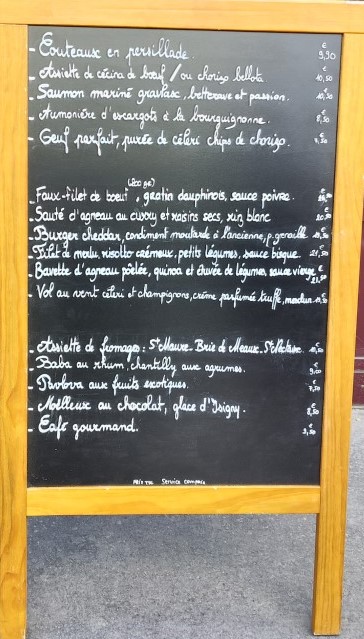 - Couteaux en persillade. € 9,90
- Assiette de cécina de bœuf / ou chorizo bellota € 10,50
- Saumon mariné gravlax, betterave et passion. € 10,50
- Aumonière d'escargots à la bourguignonne. € 8,50
- Œuf parfait, purée de céleri chips de chorizo. € 7,50
- Faux-filet de boeuf, gratin dauphinois, sauce poivre.
- Sauté d'agneau au curry et raisins secs, riz blanc
- Burger cheddar, condiment moutarde à l'ancienne, p. grenaille
- Filet de merlu, risotto crémeux, petits légumes, sauce bisque
- Bavette d'agneau poêlée, quinoa et étuvée de légumes, sauce vierge €
- Vol au vent céleri et champignons, crème parfumée truffe,
- Assiette de fromages: St Maure - Brie de Meaux - St Nectaire.
- Baba au rhum, chantilly aux agrumes. € 9,00
- Pavlova aux fruits exotiques. € 7,50
- Moelleux au chocolat, glace d'Isigny. € 8,50
- Café gourmand. €
Prix TTC Service compris